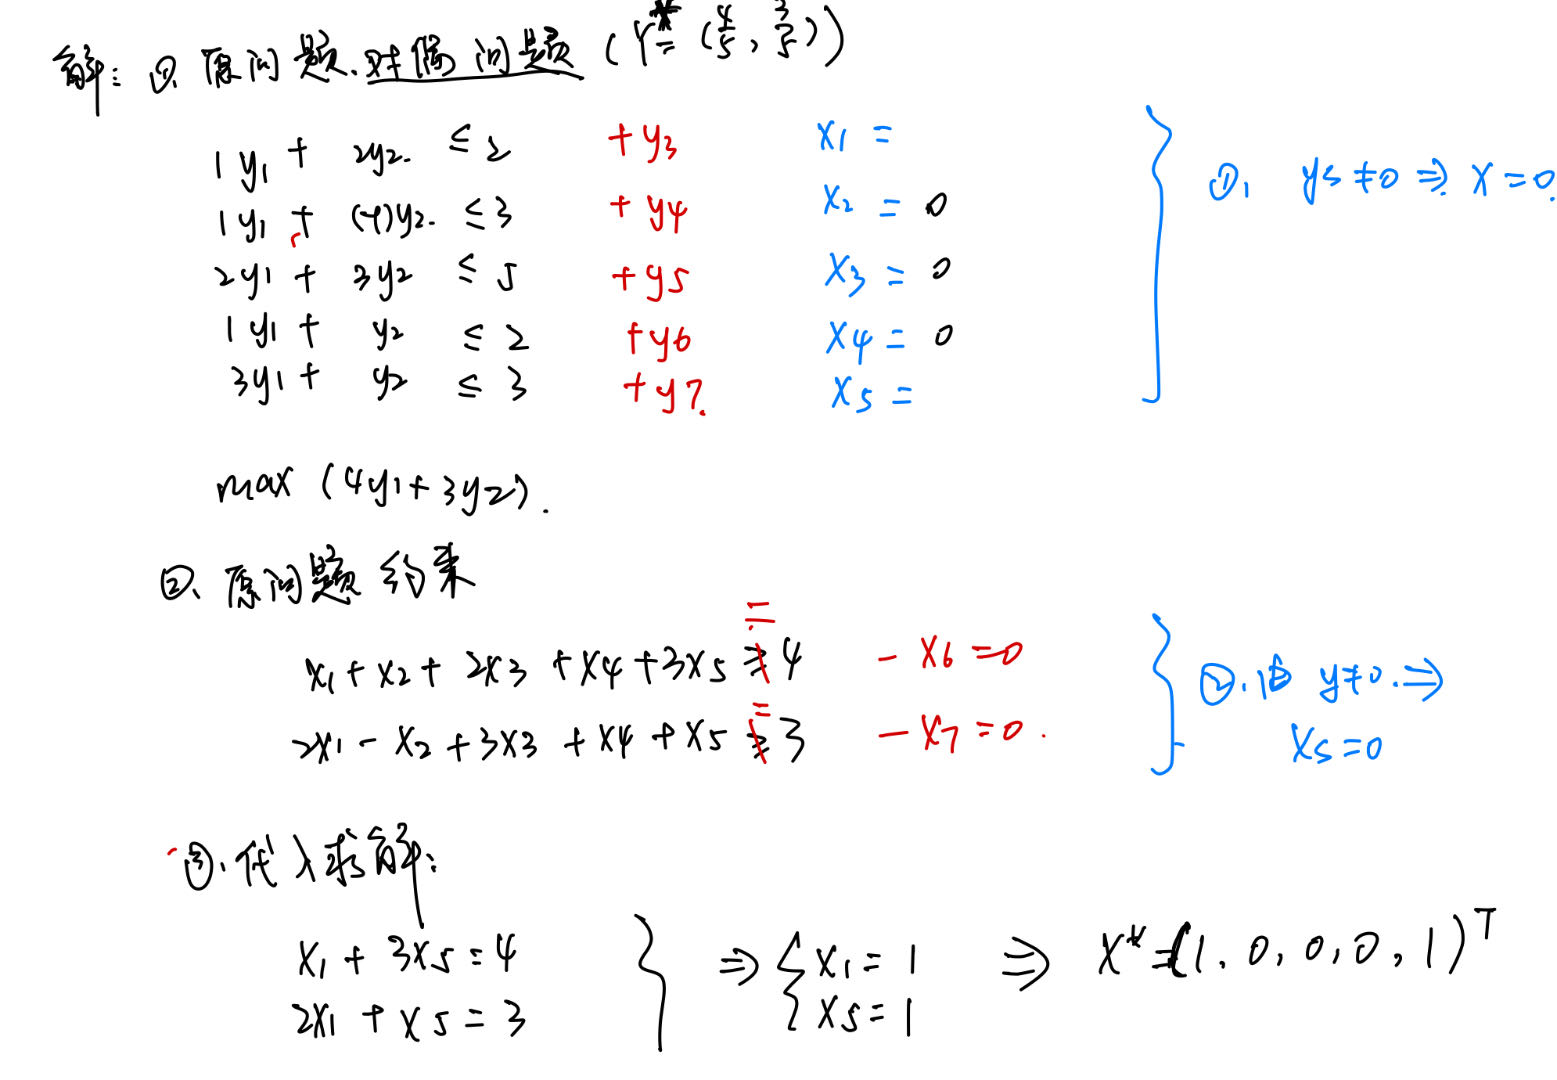 解: ①. 原问题.对偶问题 (Y*= (4/5, 3/5))
1y1 + 2y2. ≤ 2 +y3 x1 =
1y1 + (-1)y2. ≤ 3 +y4 x2 = 0
2y1 + 3y2 ≤ 5 +y5 x3 = 0
1y1 + y2 ≤ 2 +y6 x4 = 0
3y1 + y2 ≤ 3 +y7. x5 =
①, ys≠0 ⇒ x=0.
max (4y1+3y2).
②、原问题约束
x1 + x2 + 2x3 + x4 + 3x5 = ≥ 4 - x6 = 0
2x1 - x2 + 3x3 + x4 + x5 = ≥ 3 - x7 = 0.
②. y≠0. ⇒
xs=0
③. 代入求解:
x1 + 3x5 = 4
2x1 + x5 = 3
⇒ { x1 = 1
x5 = 1
⇒ X* = (1, 0, 0, 0, 1)T